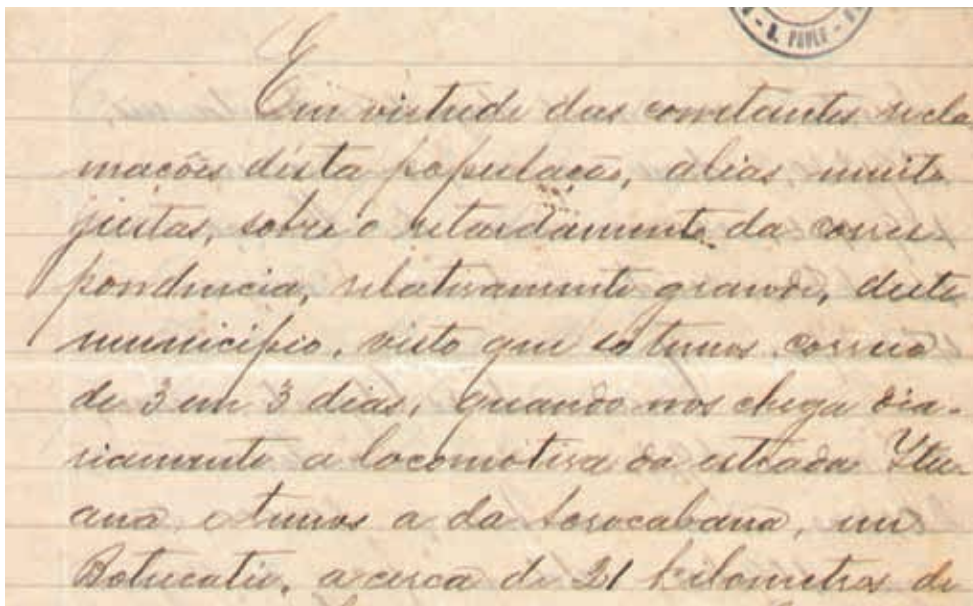 - S. PAULO -
Em virtude das constantes recla
mações désta população, alias, muito
justas, sobre o retardamento da corres-
pondencia, relativamente grande, deste
municipio, visto que só temos correio
de 3 em 3 dias, quando nos chega dia-
riamente a locomotiva da estrada Ytu-
ana, e temos a da Sorocabana, em
Botucatú, a cerca de 21 kilometros de